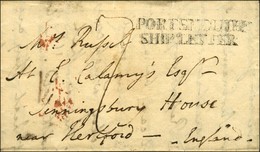 PORTSMOUTH
SHIP LETTER
Mrs. Russell
At E. Calamy's Esqr.
Jenningsbury House
near Hertford — England